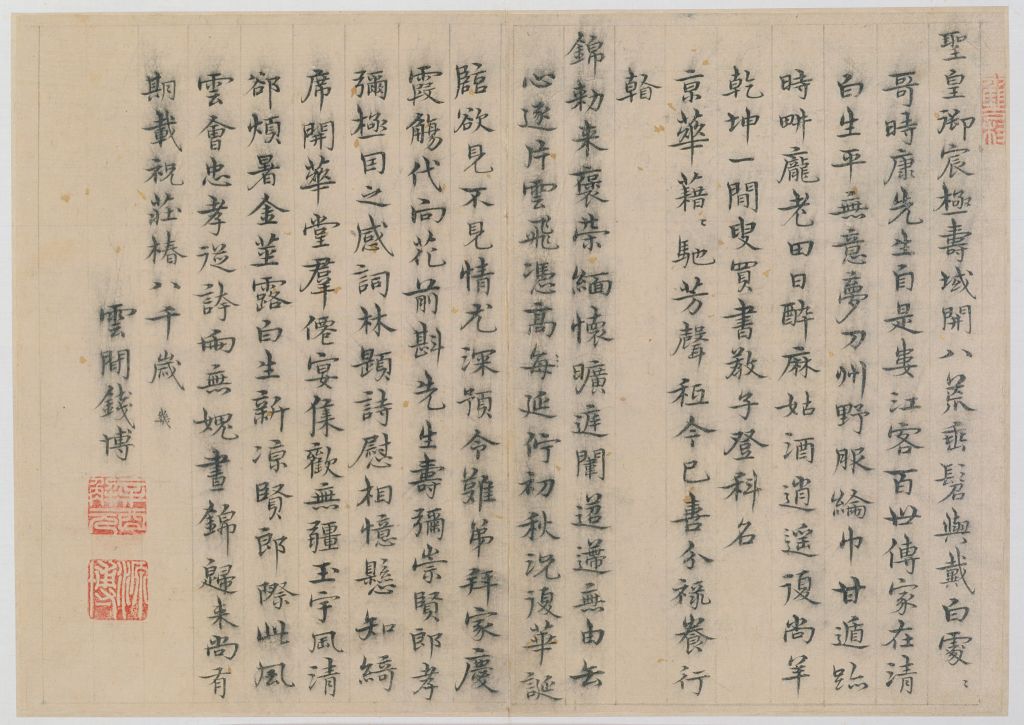 聖皇御宸極壽域開八荒垂髫與戴白處〻
哥時康先生自是婁江客百世傳家在清
白生平無意夢刀州野服綸巾甘遁跡
時畊龐老田日醉麻姑酒逍遥復尚羊
乾坤一閒叟買書教子登科名
京華藉〻馳芳聲秪今已喜分祿養行
看
錦勅来褒榮緬懷曠遅闉迢遰無由去
心逐片雲飛憑高每延佇初秋況復華誕
臨欲見不見情尤深預令難弟拜家慶
霞觴代向花前斟先生壽彌崇賢郎孝
彌極因之感詞林題詩慰相憶懸知綺
席開華堂羣僊宴集歡無疆玉宇風清
郤煩暑金莖露白生新凉賢郎際此風
雲會忠孝從誇兩無媿晝錦歸来尚有
期載祝莊椿八千歲 幾
雲間錢博